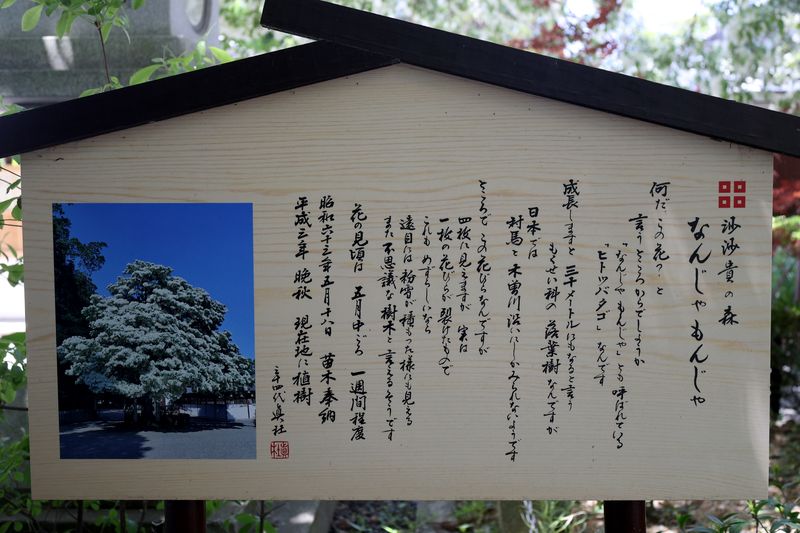 沙沙貴の森
なんじゃもんじゃ
何だ この花っ と
言うところからでしょうか
「なんじゃもんじゃ」とも 呼ばれている
「ヒトツバタゴ」 なんです
成長しますと 三十メートルにもなると言う
もくせい科の 落葉樹なんですが
日本では
対馬と 木曽川沿いにしかみられないようです
ところで この花びらなんですが
四枚に見えますが 実は
一枚の花びらが 裂けたもので
これも めずらしいなら
遠目には 粉雪が積もった様にも見える
また 不思議な樹木と 言えそうです
花の見頃は 五月中ごろ 一週間程度
昭和六十三年五月十八日 苗木奉納
平成三年 晩秋 現在地に植樹